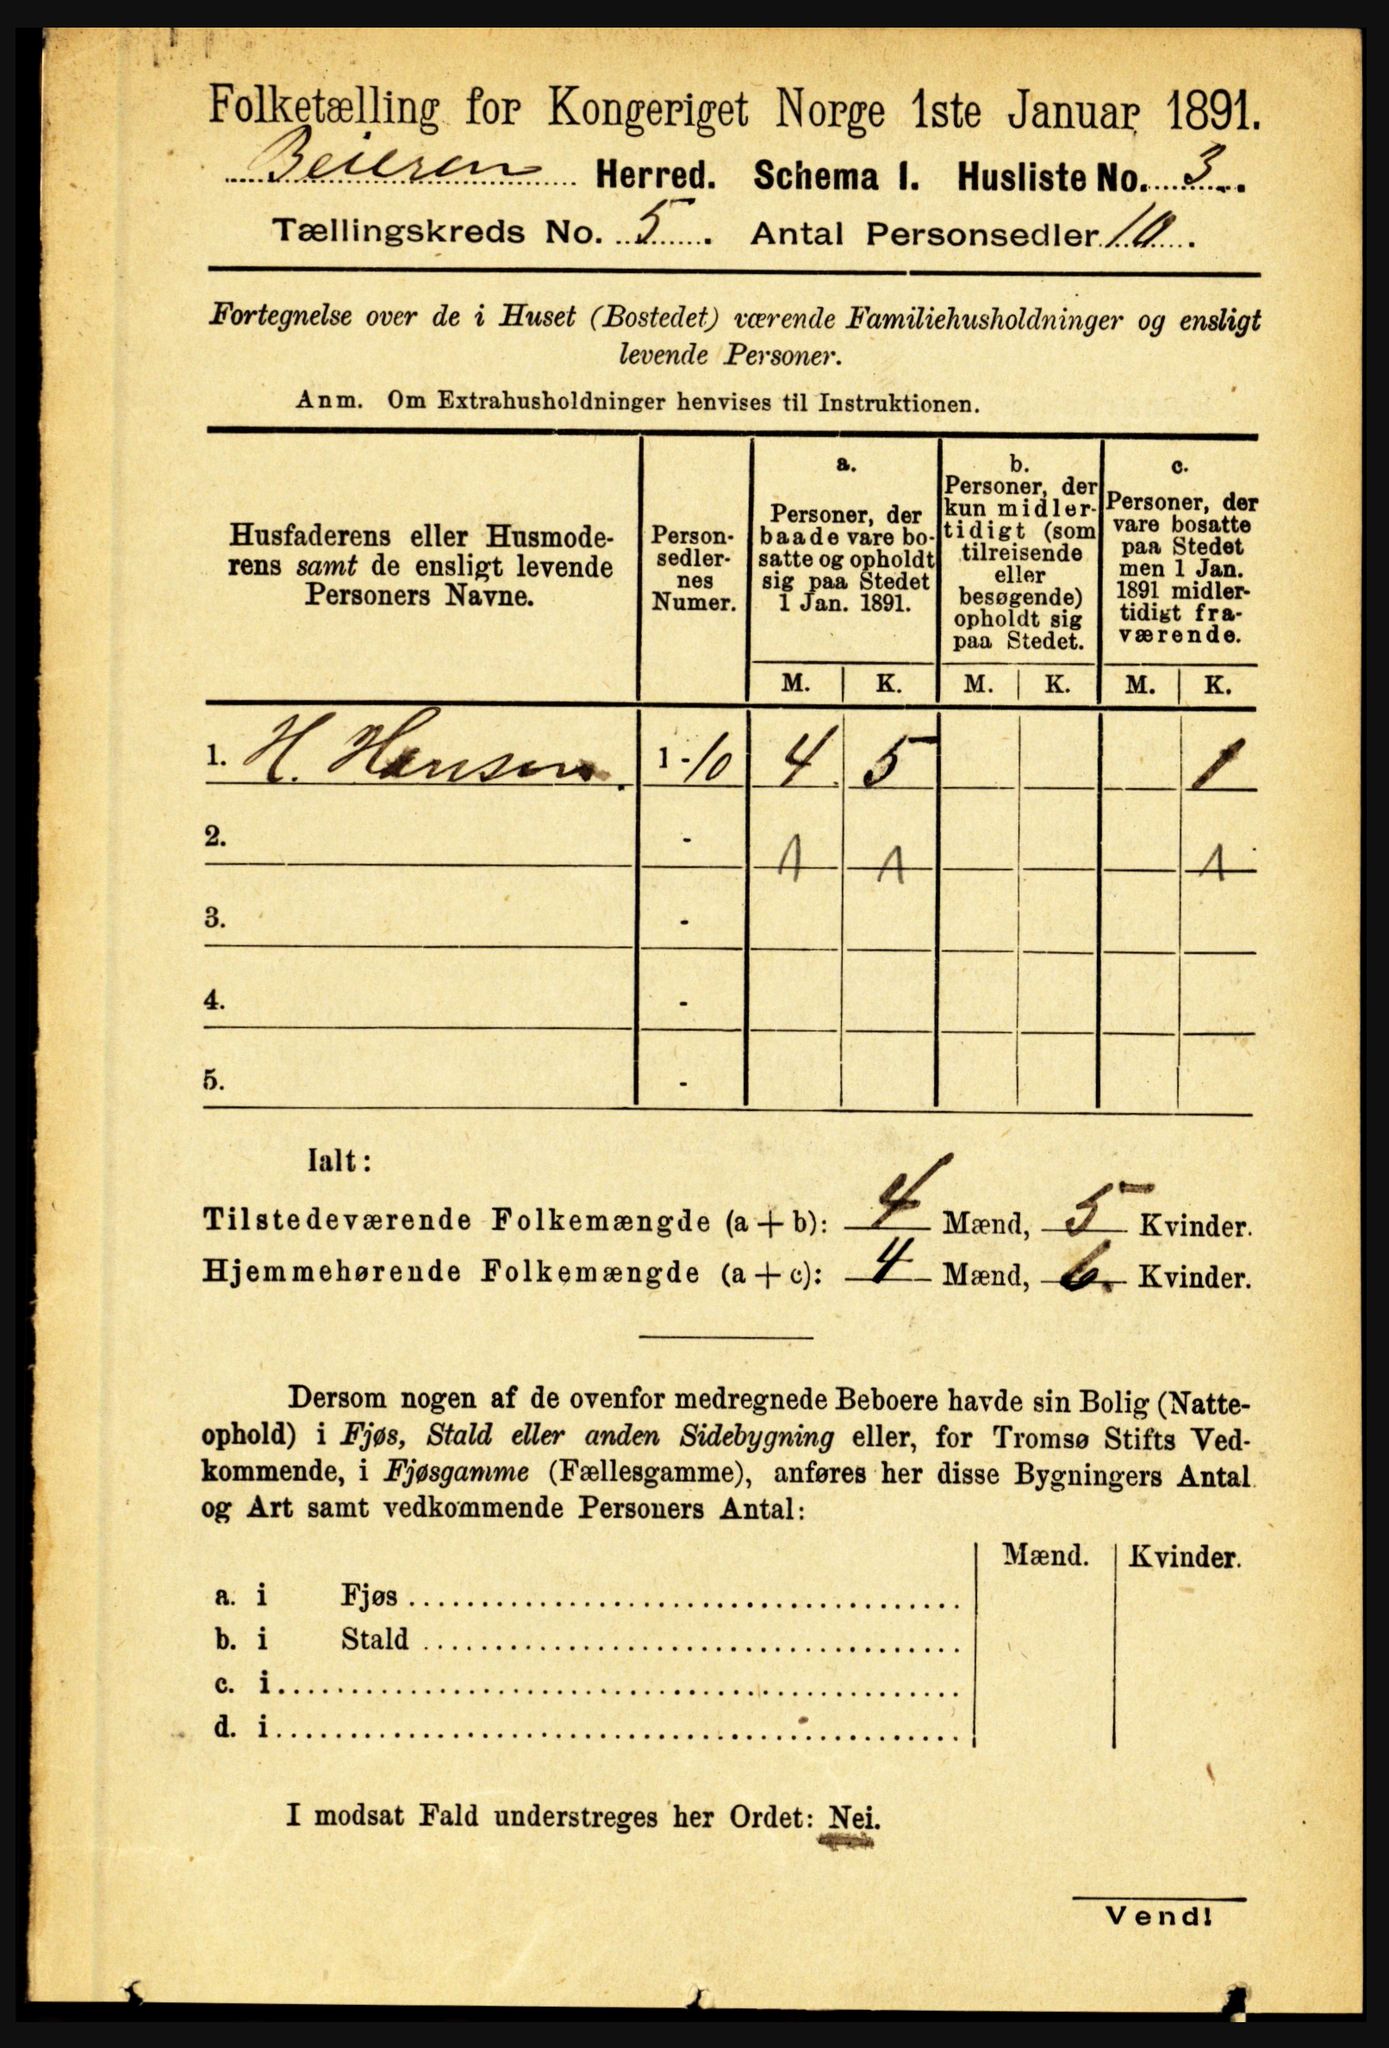 Folketælling for Kongeriget Norge 1ste Januar 1891.
Beieren Herred. Schema I. Husliste No. 3.
Tællingskreds No. 5. Antal Personsedler 10.
Fortegnelse over de i Huset (Bostedet) værende Familiehusholdninger og ensligt
levende Personer.
Anm. Om Extrahusholdninger henvises til Instruktionen.
Husfaderens eller Husmode-
rens samt de ensligt levende
Personers Navne.
Person-
sedler-
nes
Numer.
a.
Personer, der
baade vare bo-
satte og opholdt
sig paa Stedet
1 Jan. 1891.
b.
Personer, der
kun midler-
tidigt (som
tilreisende
eller
besøgende)
opholdt sig
paa Stedet.
c.
Personer, der
vare bosatte
paa Stedet
men 1 Jan.
1891 midler-
tidigt fra-
værende.
M. K. M. K. M. K.
1. H. Hansen. 1-10 4 5 1
2. - 1 1 1
3. -
4. -
5. -
Ialt:
Tilstedeværende Folkemængde (a+b): 4 Mænd, 5 Kvinder.
Hjemmehørende Folkemængde (a+c): 4 Mænd, 6. Kvinder.
Dersom nogen af de ovenfor medregnede Beboere havde sin Bolig (Natte-
ophold) i Fjøs, Stald eller anden Sidebygning eller, for Tromsø Stifts Ved-
kommende, i Fjøsgamme (Fællesgamme), anføres her disse Bygningers Antal
og Art samt vedkommende Personers Antal:
Mænd. Kvinder.
a. i Fjøs
b. i Stald
c. i
d. i
I modsat Fald understreges her Ordet: Nei.
Vend!